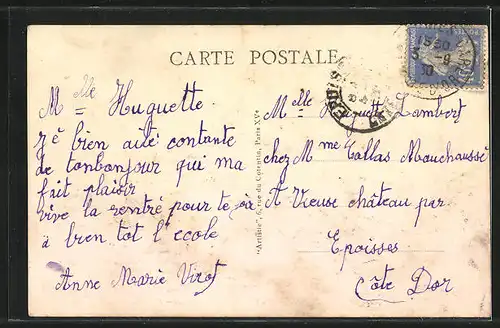 CARTE POSTALE
Mlle Huguette
j'é bien aité contante
de tonbonjour qui ma
fait plaisir
vive la rentré pour te
à bien tot l'ecole
Anne Marie Virot
"Artistic", 6, rue du Cotentin, Paris XVe
Mlle Huguette Lambert
chez Mme Tallas Mouchaussé
A Vieuse château par
Epoisses
Côte Dor
1530
5-9
30